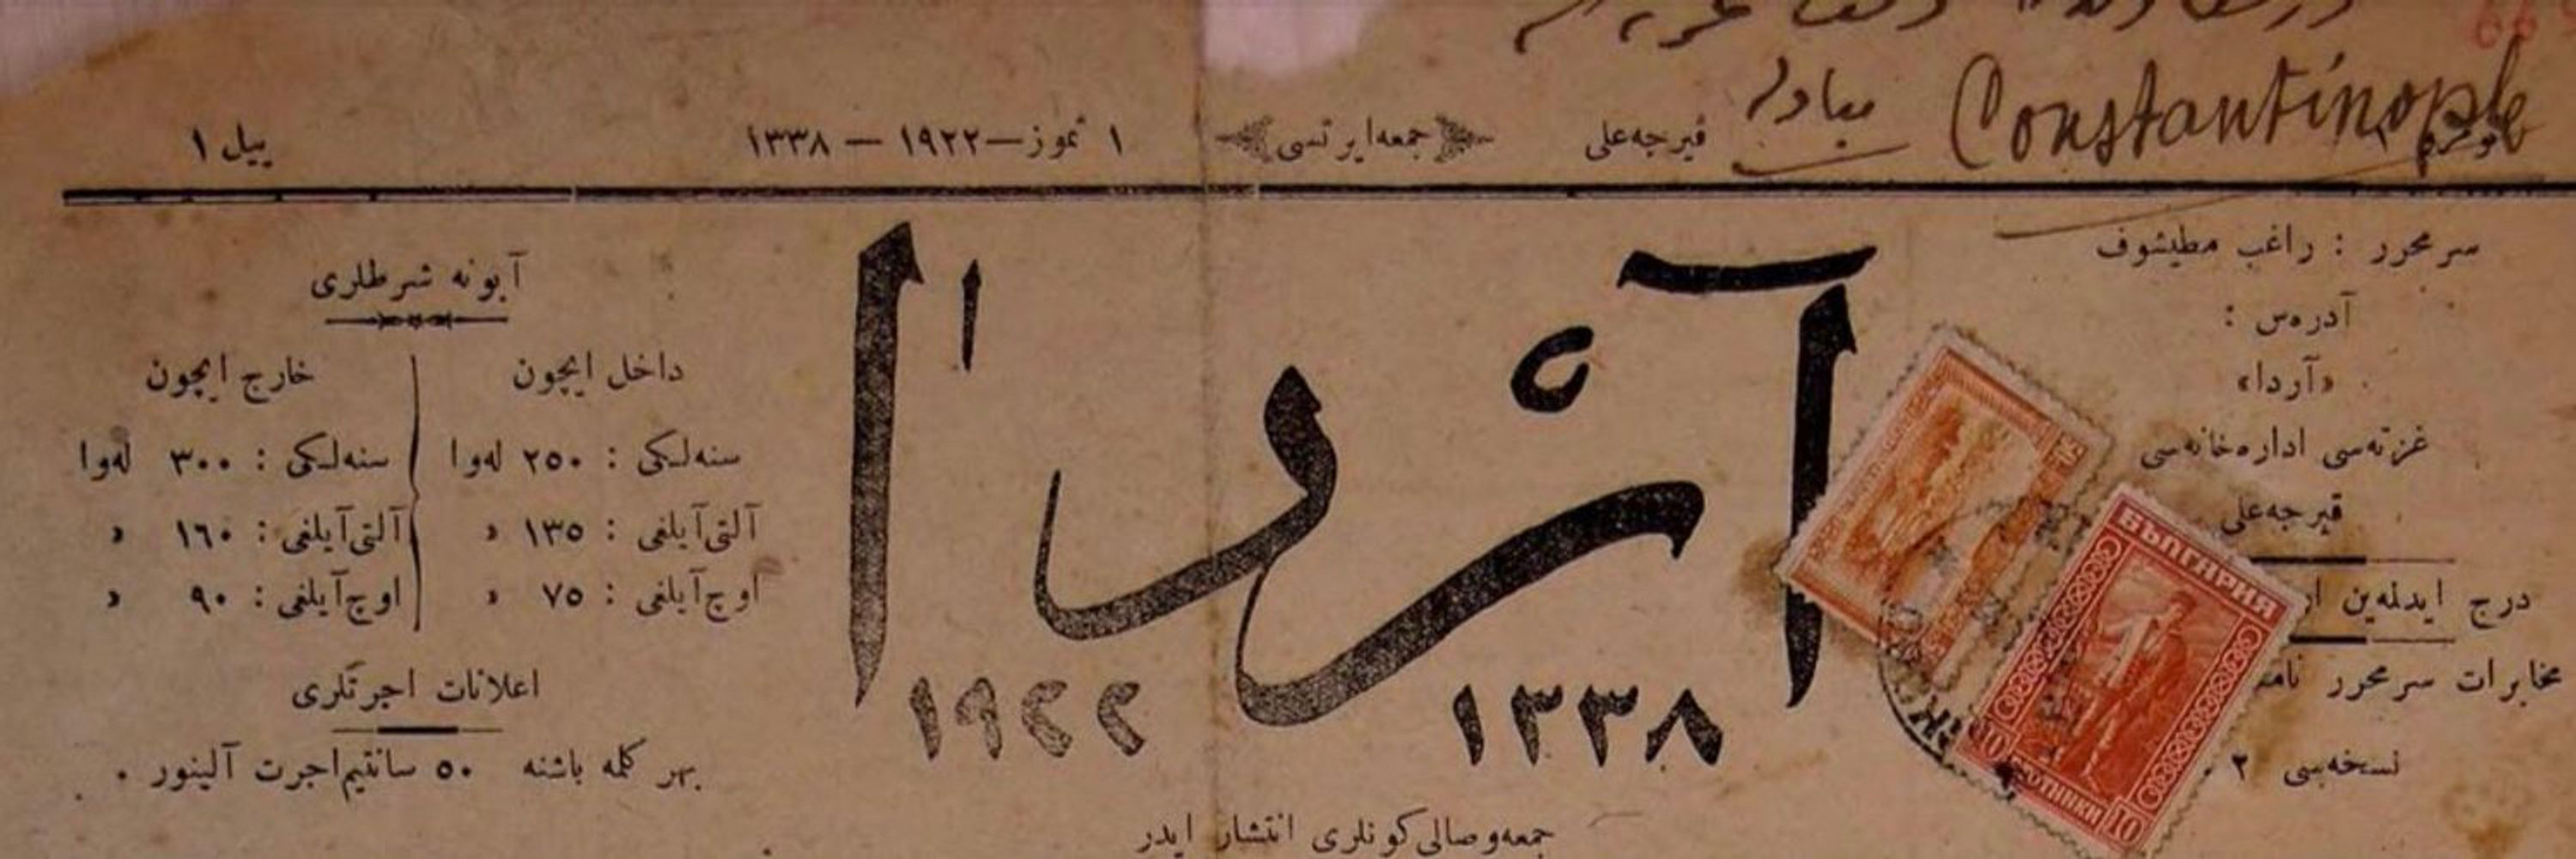 Constantinople
مبادله
قیرجه‌علی
جمعه‌ایرتسی
١ تموز—١٩٢٢ — ١٣٣٨
ییل ١
سرمحرر : راغب مطیشوف
آدره‌س :
«آردا»
غزته‌سی اداره‌خانه‌سی
قیرجه‌علی
درج ایدلمه‌ین
مخابرات سرمحرر نامنه
نسخه‌سی ٢
БЪЛГАРИЯ
10 СТОТИНКИ 10
آردا
١٣٣٨
١٩٢٢
جمعه‌وصالی‌کونلری انتشار ایدر
آبونه شرطلری
داخل ایچون
سنه‌لکی : ٢٥٠ له‌وا
آلتی‌آیلغی : ١٣٥ »
اوچ‌آیلغی : ٧٥ »
خارج ایچون
سنه‌لکی : ٣٠٠ له‌وا
آلتی‌آیلغی : ١٦٠ »
اوچ‌آیلغی : ٩٠ »
اعلانات اجرتلری
بهر کلمه باشنه ٥٠ سانتیم‌اجرت آلینور .